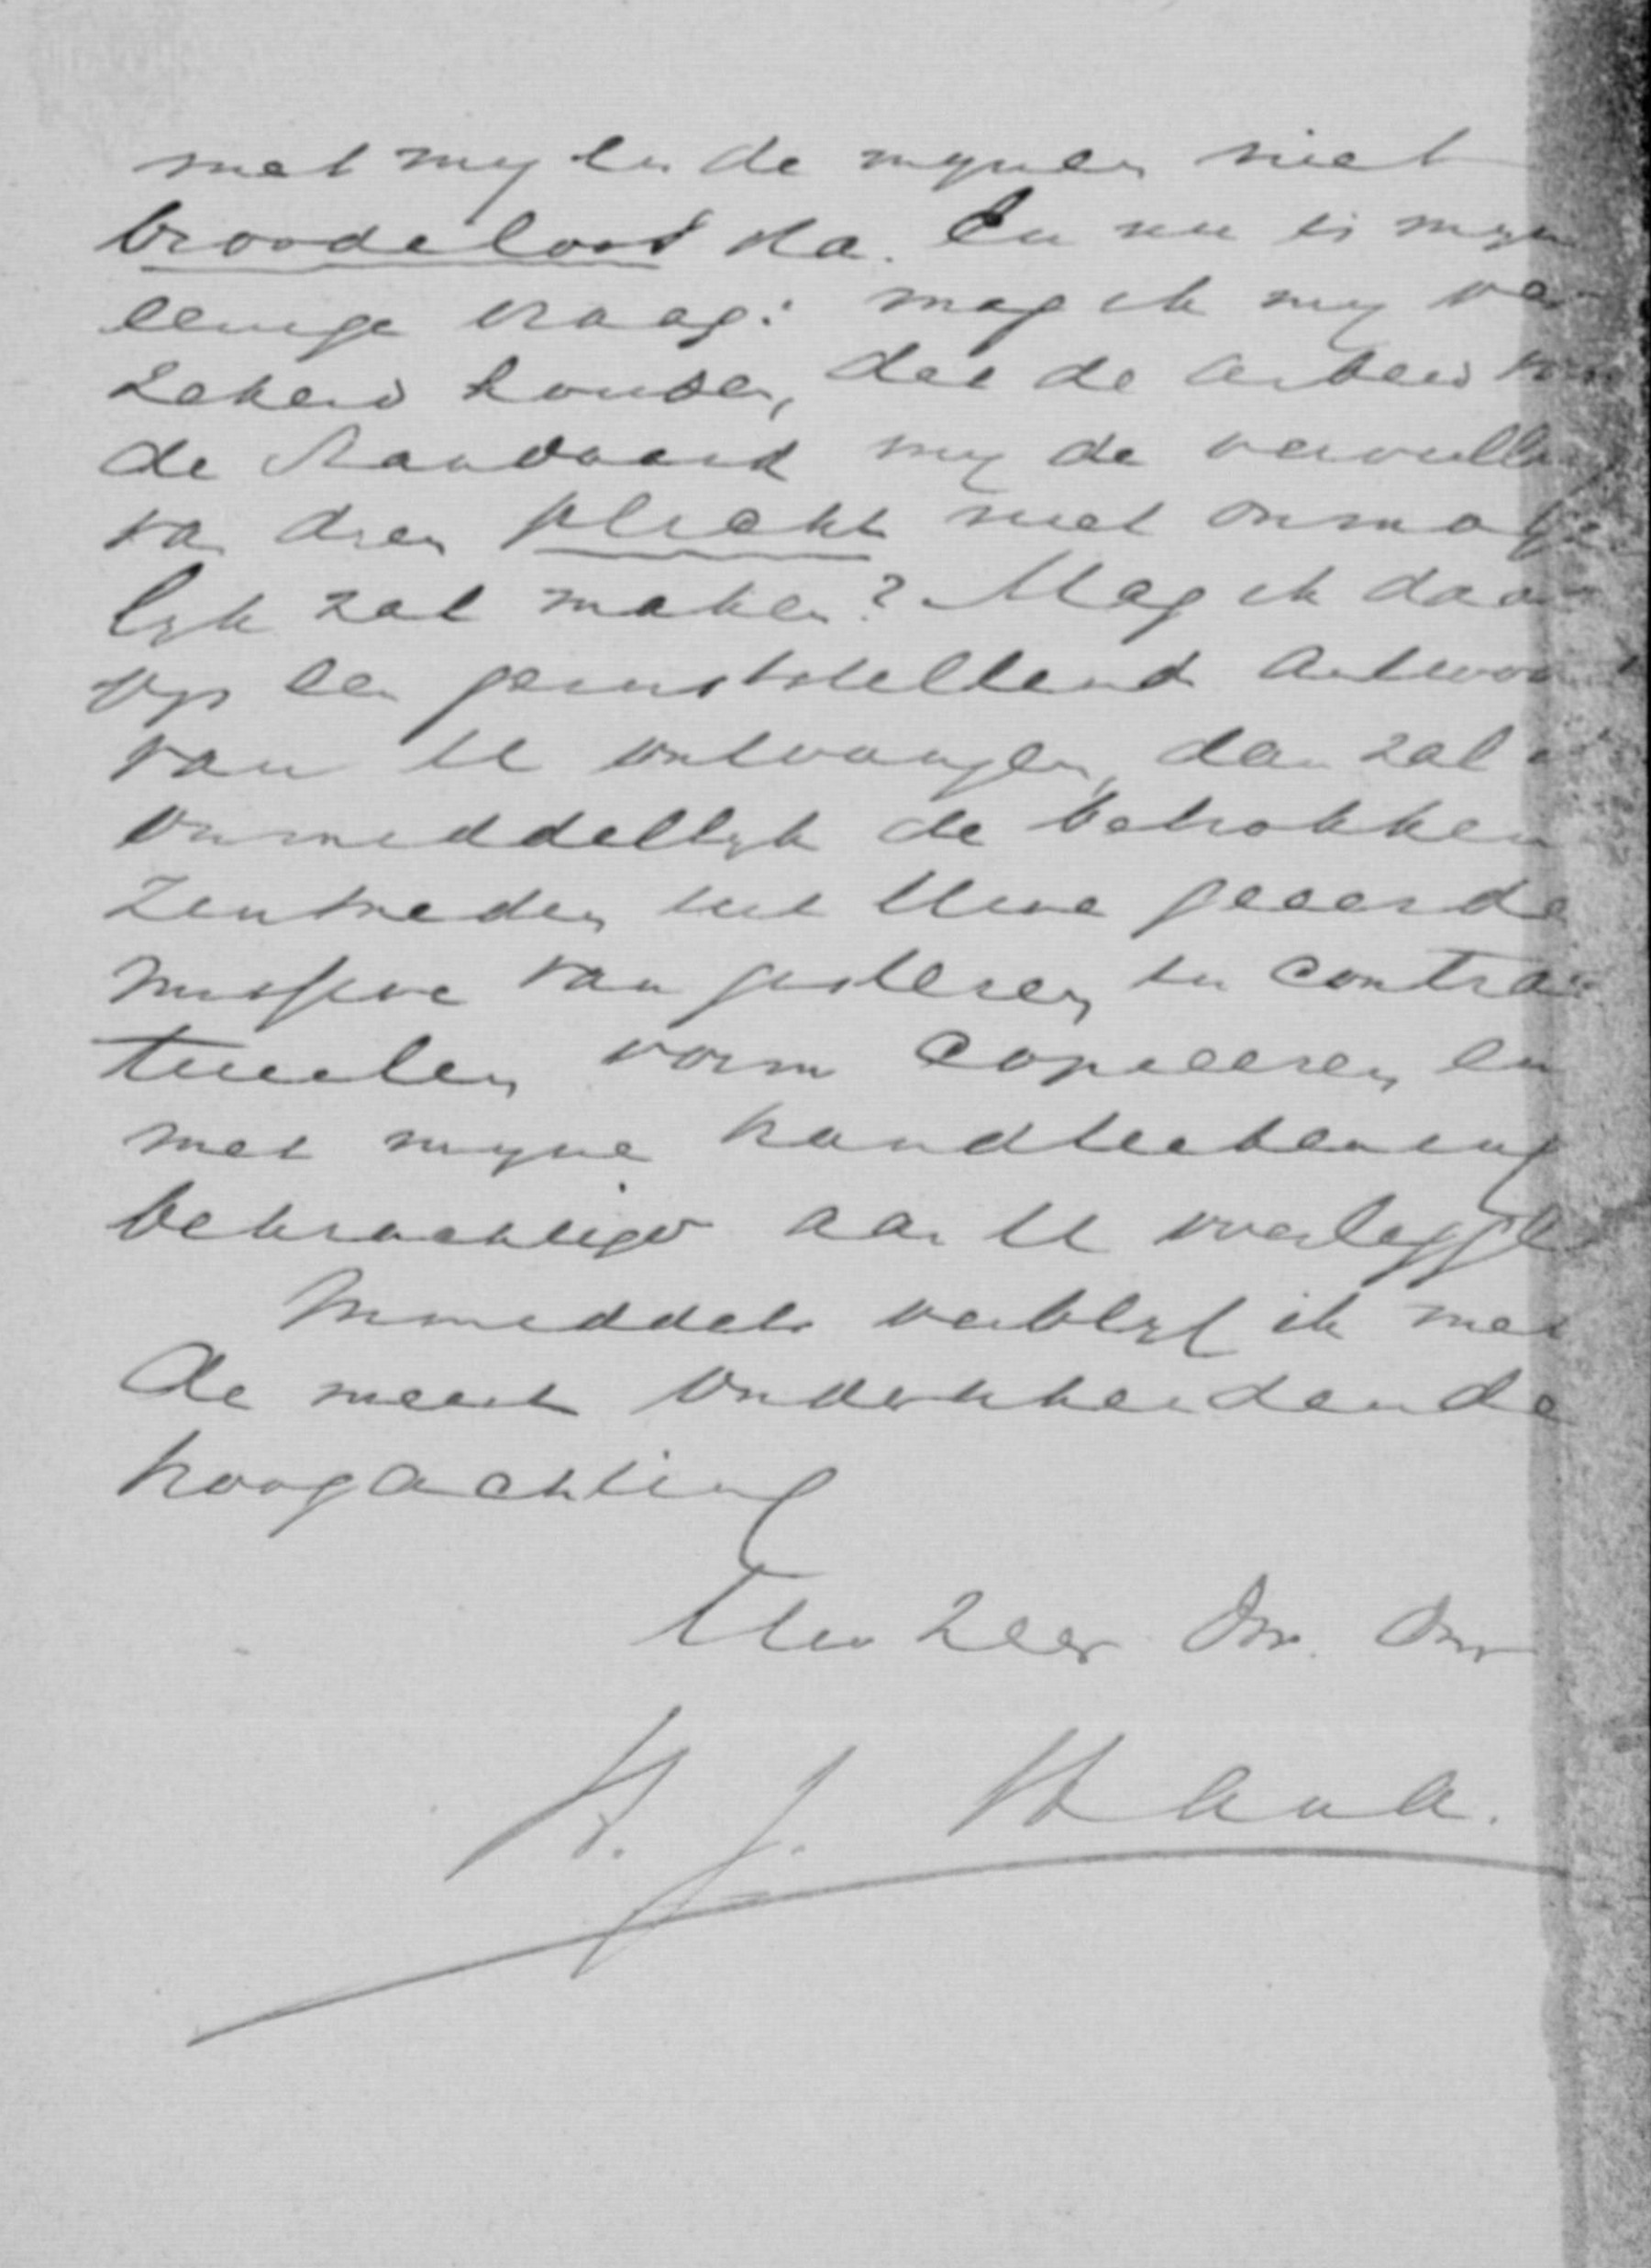 met my en de mynen niet
broodeloos sta. En nu is myn
eenige vraag: mag ik my ver
zekerd houden, dat de arbeid van
de Standaard my de vervulling
van dien plicht niet onmoge
lyk zal maken? Mag ik daar
op een geruststellend antwoord
van U ontvangen, dan zal ik
onmiddellyk de betrokken
zinsneden uit Uwe geeerde
missive van gisteren in contrac
tueelen vorm copieeren en
met myne handteekening
bekrachtigd aan U overleggen
Inmiddels verblyf ik met
de meest onderscheidende
hoogachting
Uw zeer Dw. Dnr
H. J.